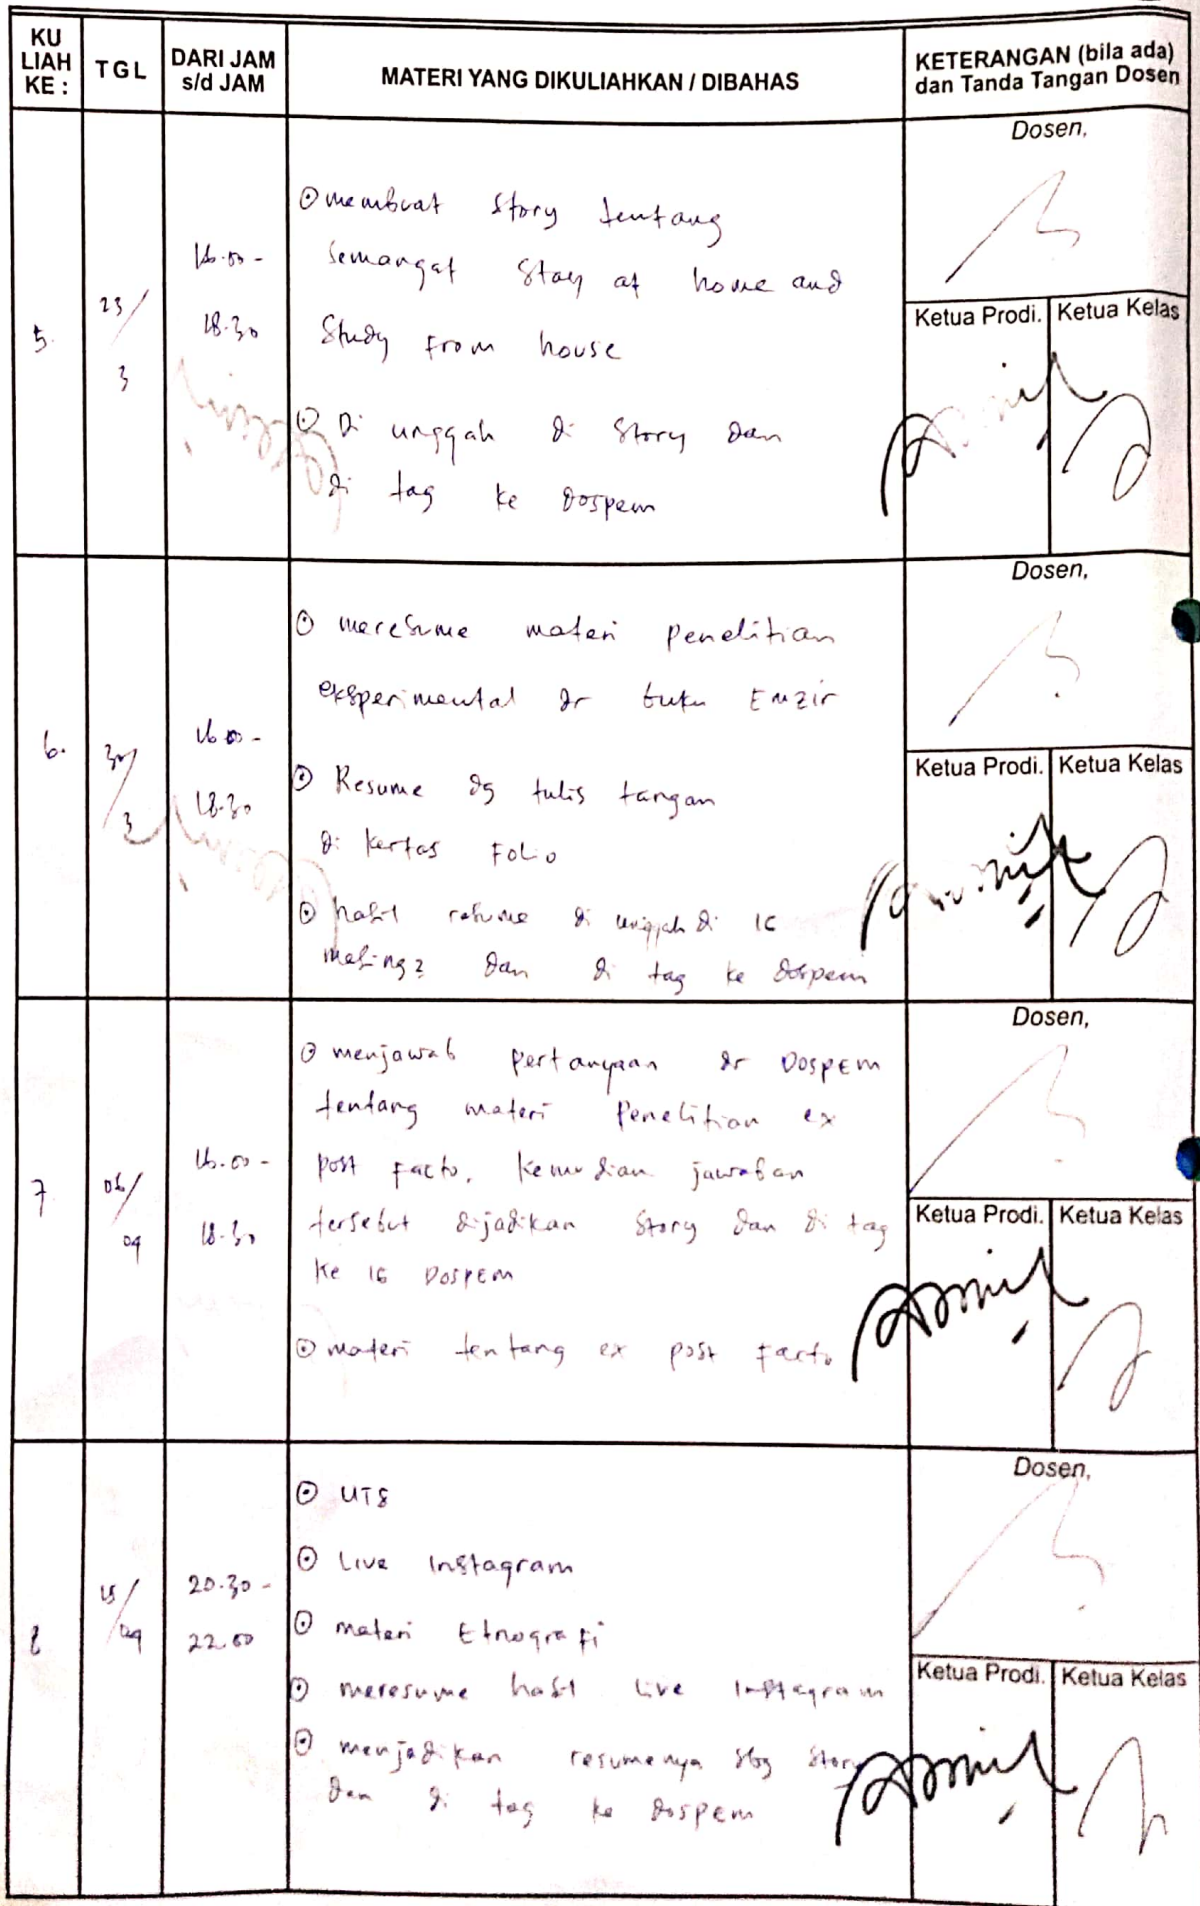 KU LIAH KE :
TGL
DARI JAM s/d JAM
MATERI YANG DIKULIAHKAN / DIBAHAS
KETERANGAN (bila ada) dan Tanda Tangan Dosen
5.
23/3
16.00 -
18.30
membuat story tentang
semangat stay at home and
study from house
Di unggah di story dan
di tag ke dospem
Dosen,
Ketua Prodi.
Ketua Kelas
6.
30/3
16.00 -
18.30
meresume materi penelitian
eksperimental dr buku Emzir
Resume dg tulis tangan
di kertas Folio
hasil resume di unggah di IG
masing2 dan di tag ke dospem
Dosen,
Ketua Prodi.
Ketua Kelas
7
06/04
16.00 -
18.30
menjawab pertanyaan dr Dospem
tentang materi Penelitian ex
post facto, kemudian jawaban
tersebut dijadikan story dan di tag
ke IG Dospem
materi tentang ex post facto
Dosen,
Ketua Prodi.
Ketua Kelas
8
/04
20.30 -
22.00
UTS
Live Instagram
materi Etnografi
meresume hasil Live Instagram
menjadikan resumenya sbg story
dan di tag ke dospem
Dosen,
Ketua Prodi.
Ketua Kelas